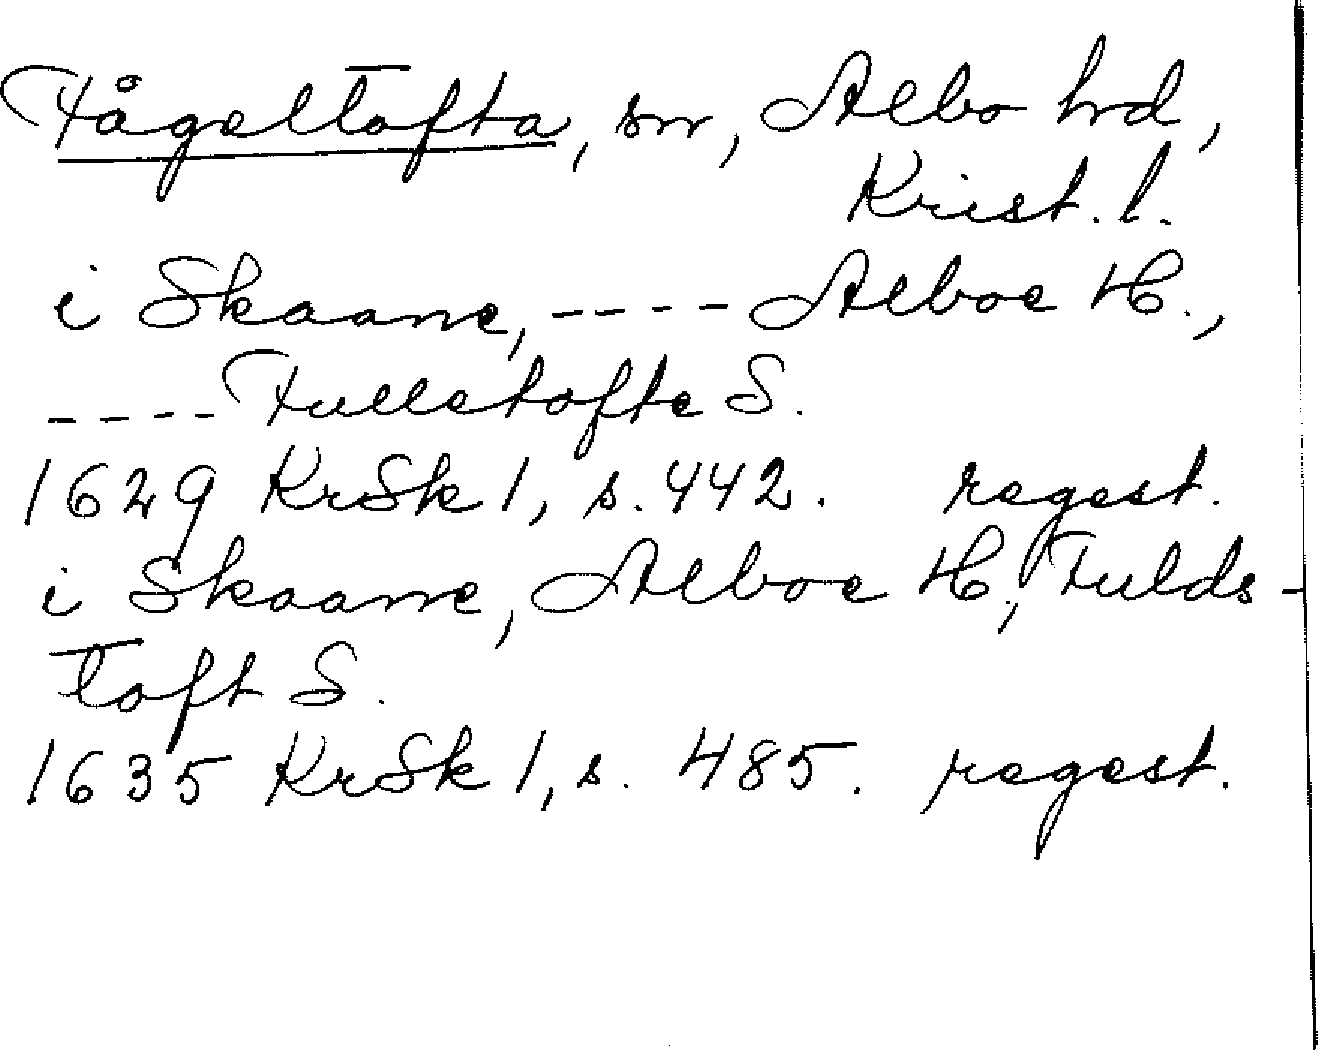 Fågeltofta, sn, Albo hd,
Krist. l.
i Skaane, ---- Alboe H.,
---- Fulletofte S.
1629 KrSk 1, s. 442. regest.
i Skaane, Alboe H, Fulds-
toft S.
1635 KrSk 1, s. 485. regest.